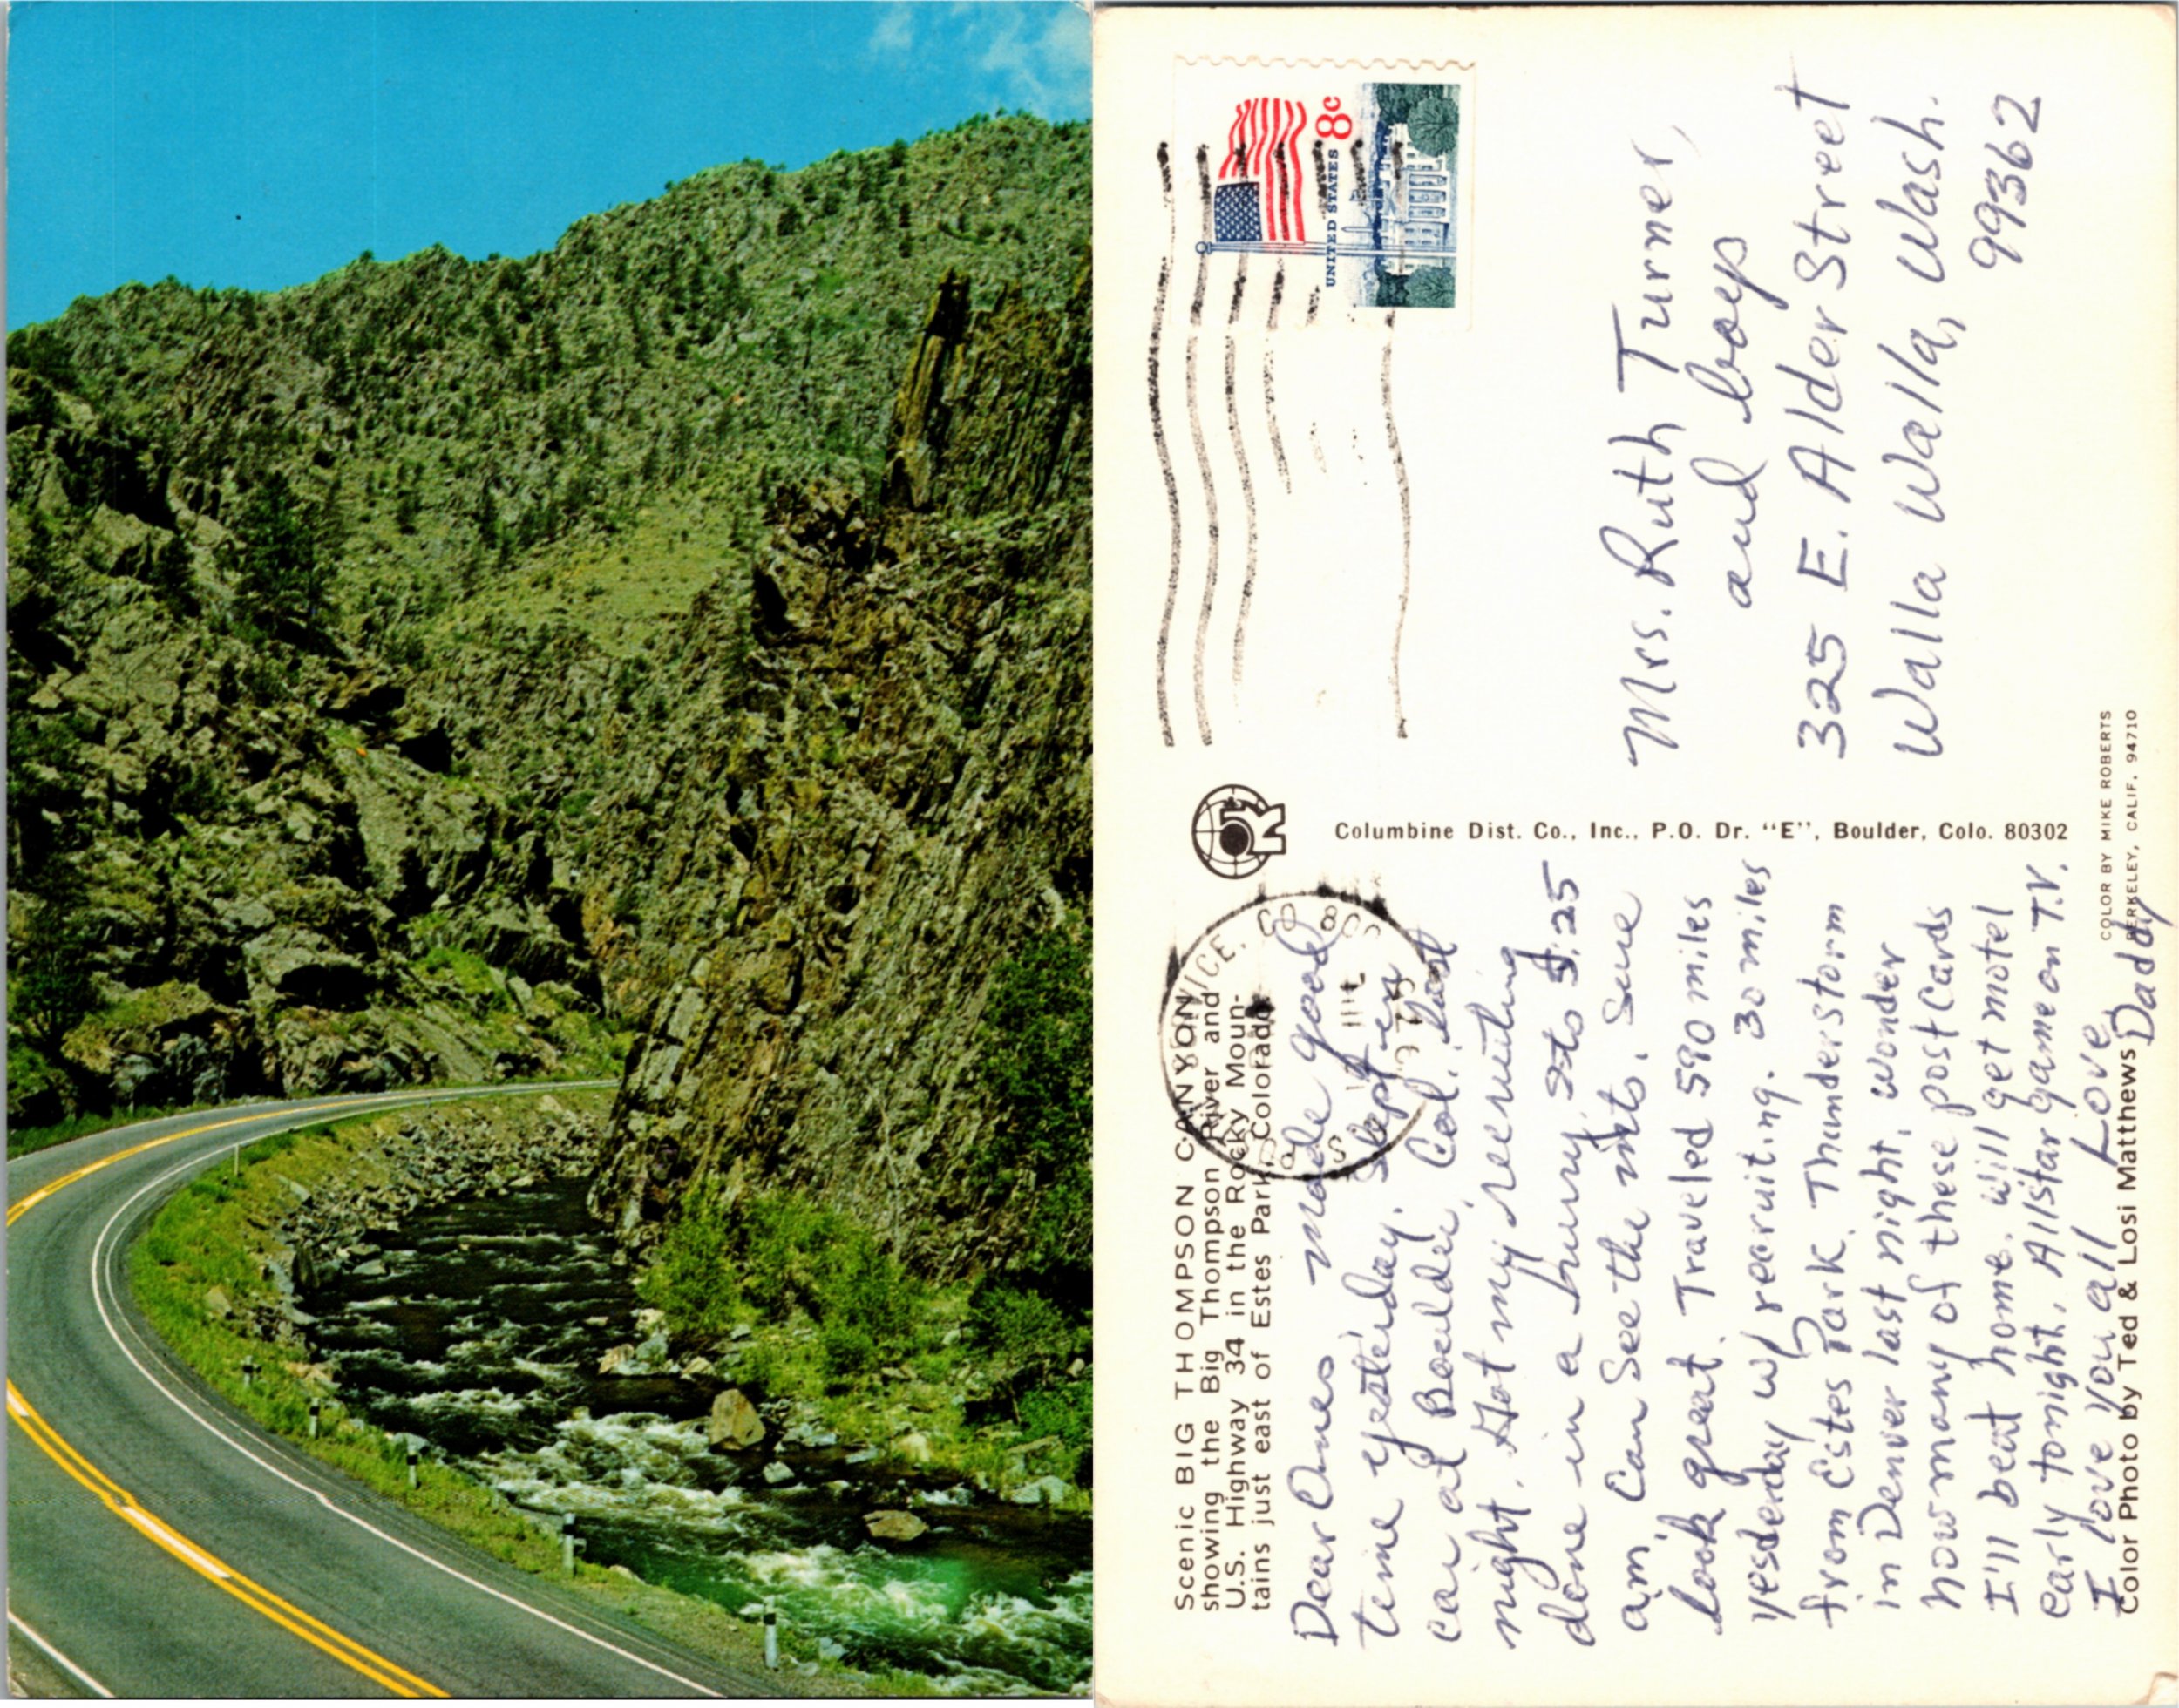 Scenic BIG THOMPSON CANYON
showing the Big Thompson River and
U.S. Highway 34 in the Rocky Moun-
tains just east of Estes Park, Colorado.
Dear Ones made good
time yesterday. Slept in
car at Boulder, Col. last
night. Got my recruiting
done in a hurry.
am, Can see the mts. Sure
look great. Traveled 590 miles
yesterday w/ recruiting. 30 miles
from Estes Park. Thunderstorm
in Denver last night. wonder
how many of these post Cards
I'll beat home. will get motel
early tonight. Allstar game on T.V.
I love you all Love,
Daddy
Color Photo by Ted & Losi Matthews
R
Columbine Dist. Co., Inc., P.O. Dr. "E", Boulder, Colo. 80302
COLOR BY MIKE ROBERTS
BERKELEY, CALIF. 94710
UNITED STATES 8c
Mrs. Ruth Turner,
and boys
325 E. Alder Street
Walla Walla, Wash.
99362